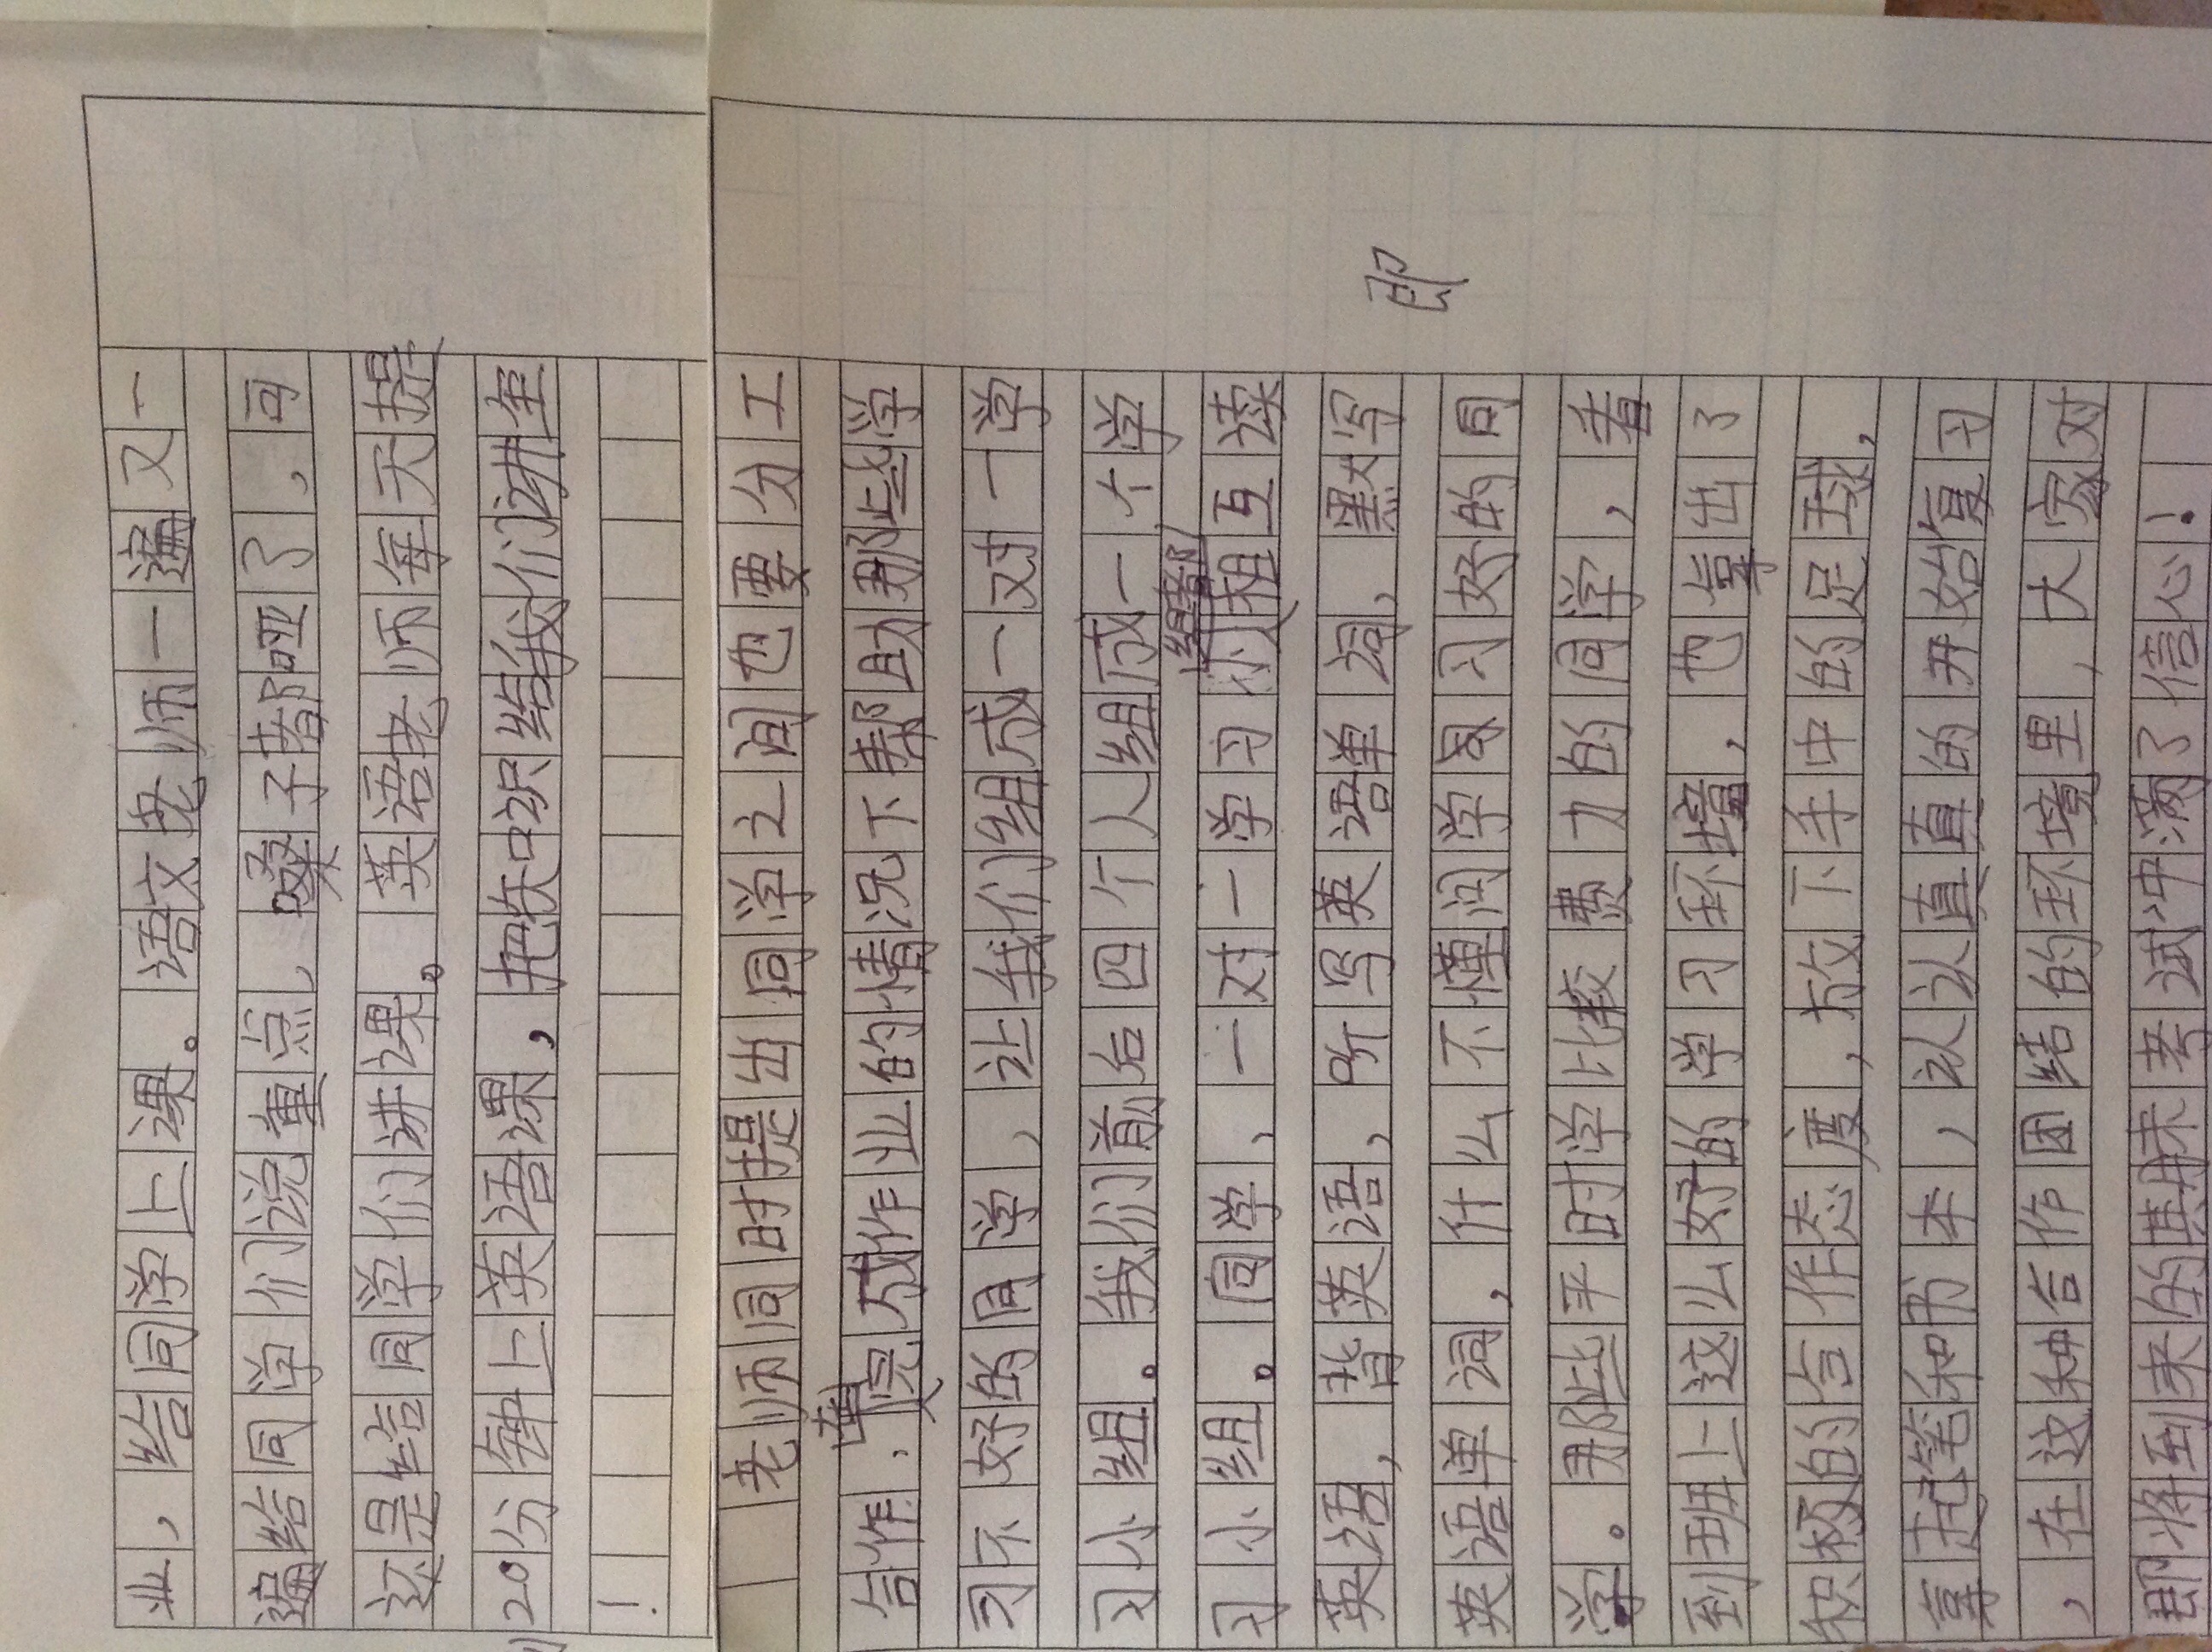 业，给同学上课。语文老师一遍又一
遍给同学们说重点，嗓子都哑了，可
还是给同学们讲课。英语老师每天提
20分钟上英语课，把知识给我们讲全
！
老师同时提出同学之间也要分工
合作，完成作业的情况下帮助那些学
习不好的同学，让我们组成一对一学
习小组。我们前后四个人组成一个学
习小组。同学，一对一学习小组互读
英语，背英语，听写英语单词，默写
英语单词，什么不懂问学习好的同
学。那些平时学比较费力的同学，看
到班上这么好的学习环境，也拿出了
积极的合作态度，放下手中的足球，
拿起笔和书本，认认真真的开始复习
，在这种合作团结的环境里，大家对
即将到来的期末考试冲满了信心！
即